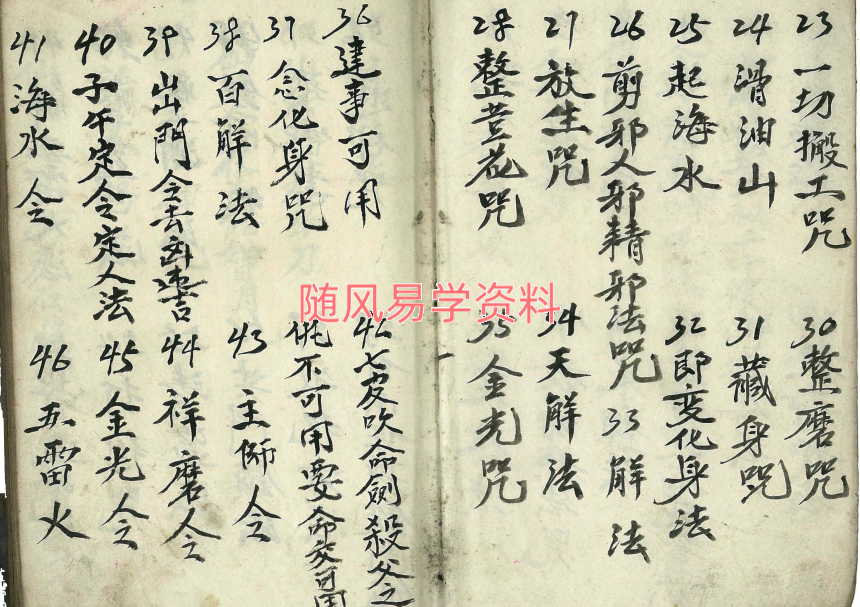 23 一切搬工咒
24 滑油山
25 起海水
26 剪邪人邪精邪法咒
27 放生咒
28 整荳花咒
30 整磨咒
31 藏身咒
32 即変化身法
33 解法
34 天解法
35 金光咒
36 達事可用
37 念化身咒
38 百解法
39 出門令去
40 子午定令定人法
41 海水令
42 七皮吹命劍殺父之
仇不可用要命交可用
43 主師令
44 祥磨令
45 金光令
46 五雷火
随风易学资料